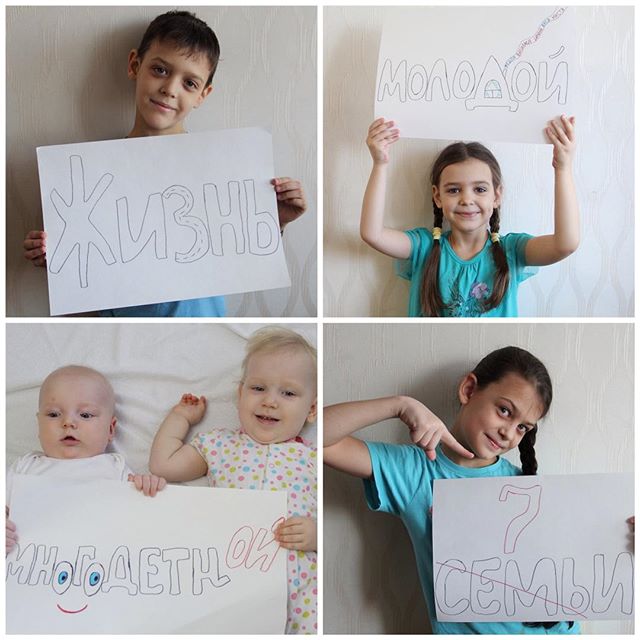 ЖИЗНЬ
МОЛОДОЙ
МНОГОДЕТНОЙ
7
СЕМЬИ